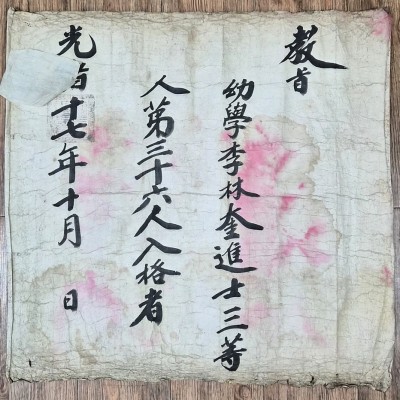 敎旨
幼學李林奎進士三等
人第三十六人入格者
光緖十七年十月 日